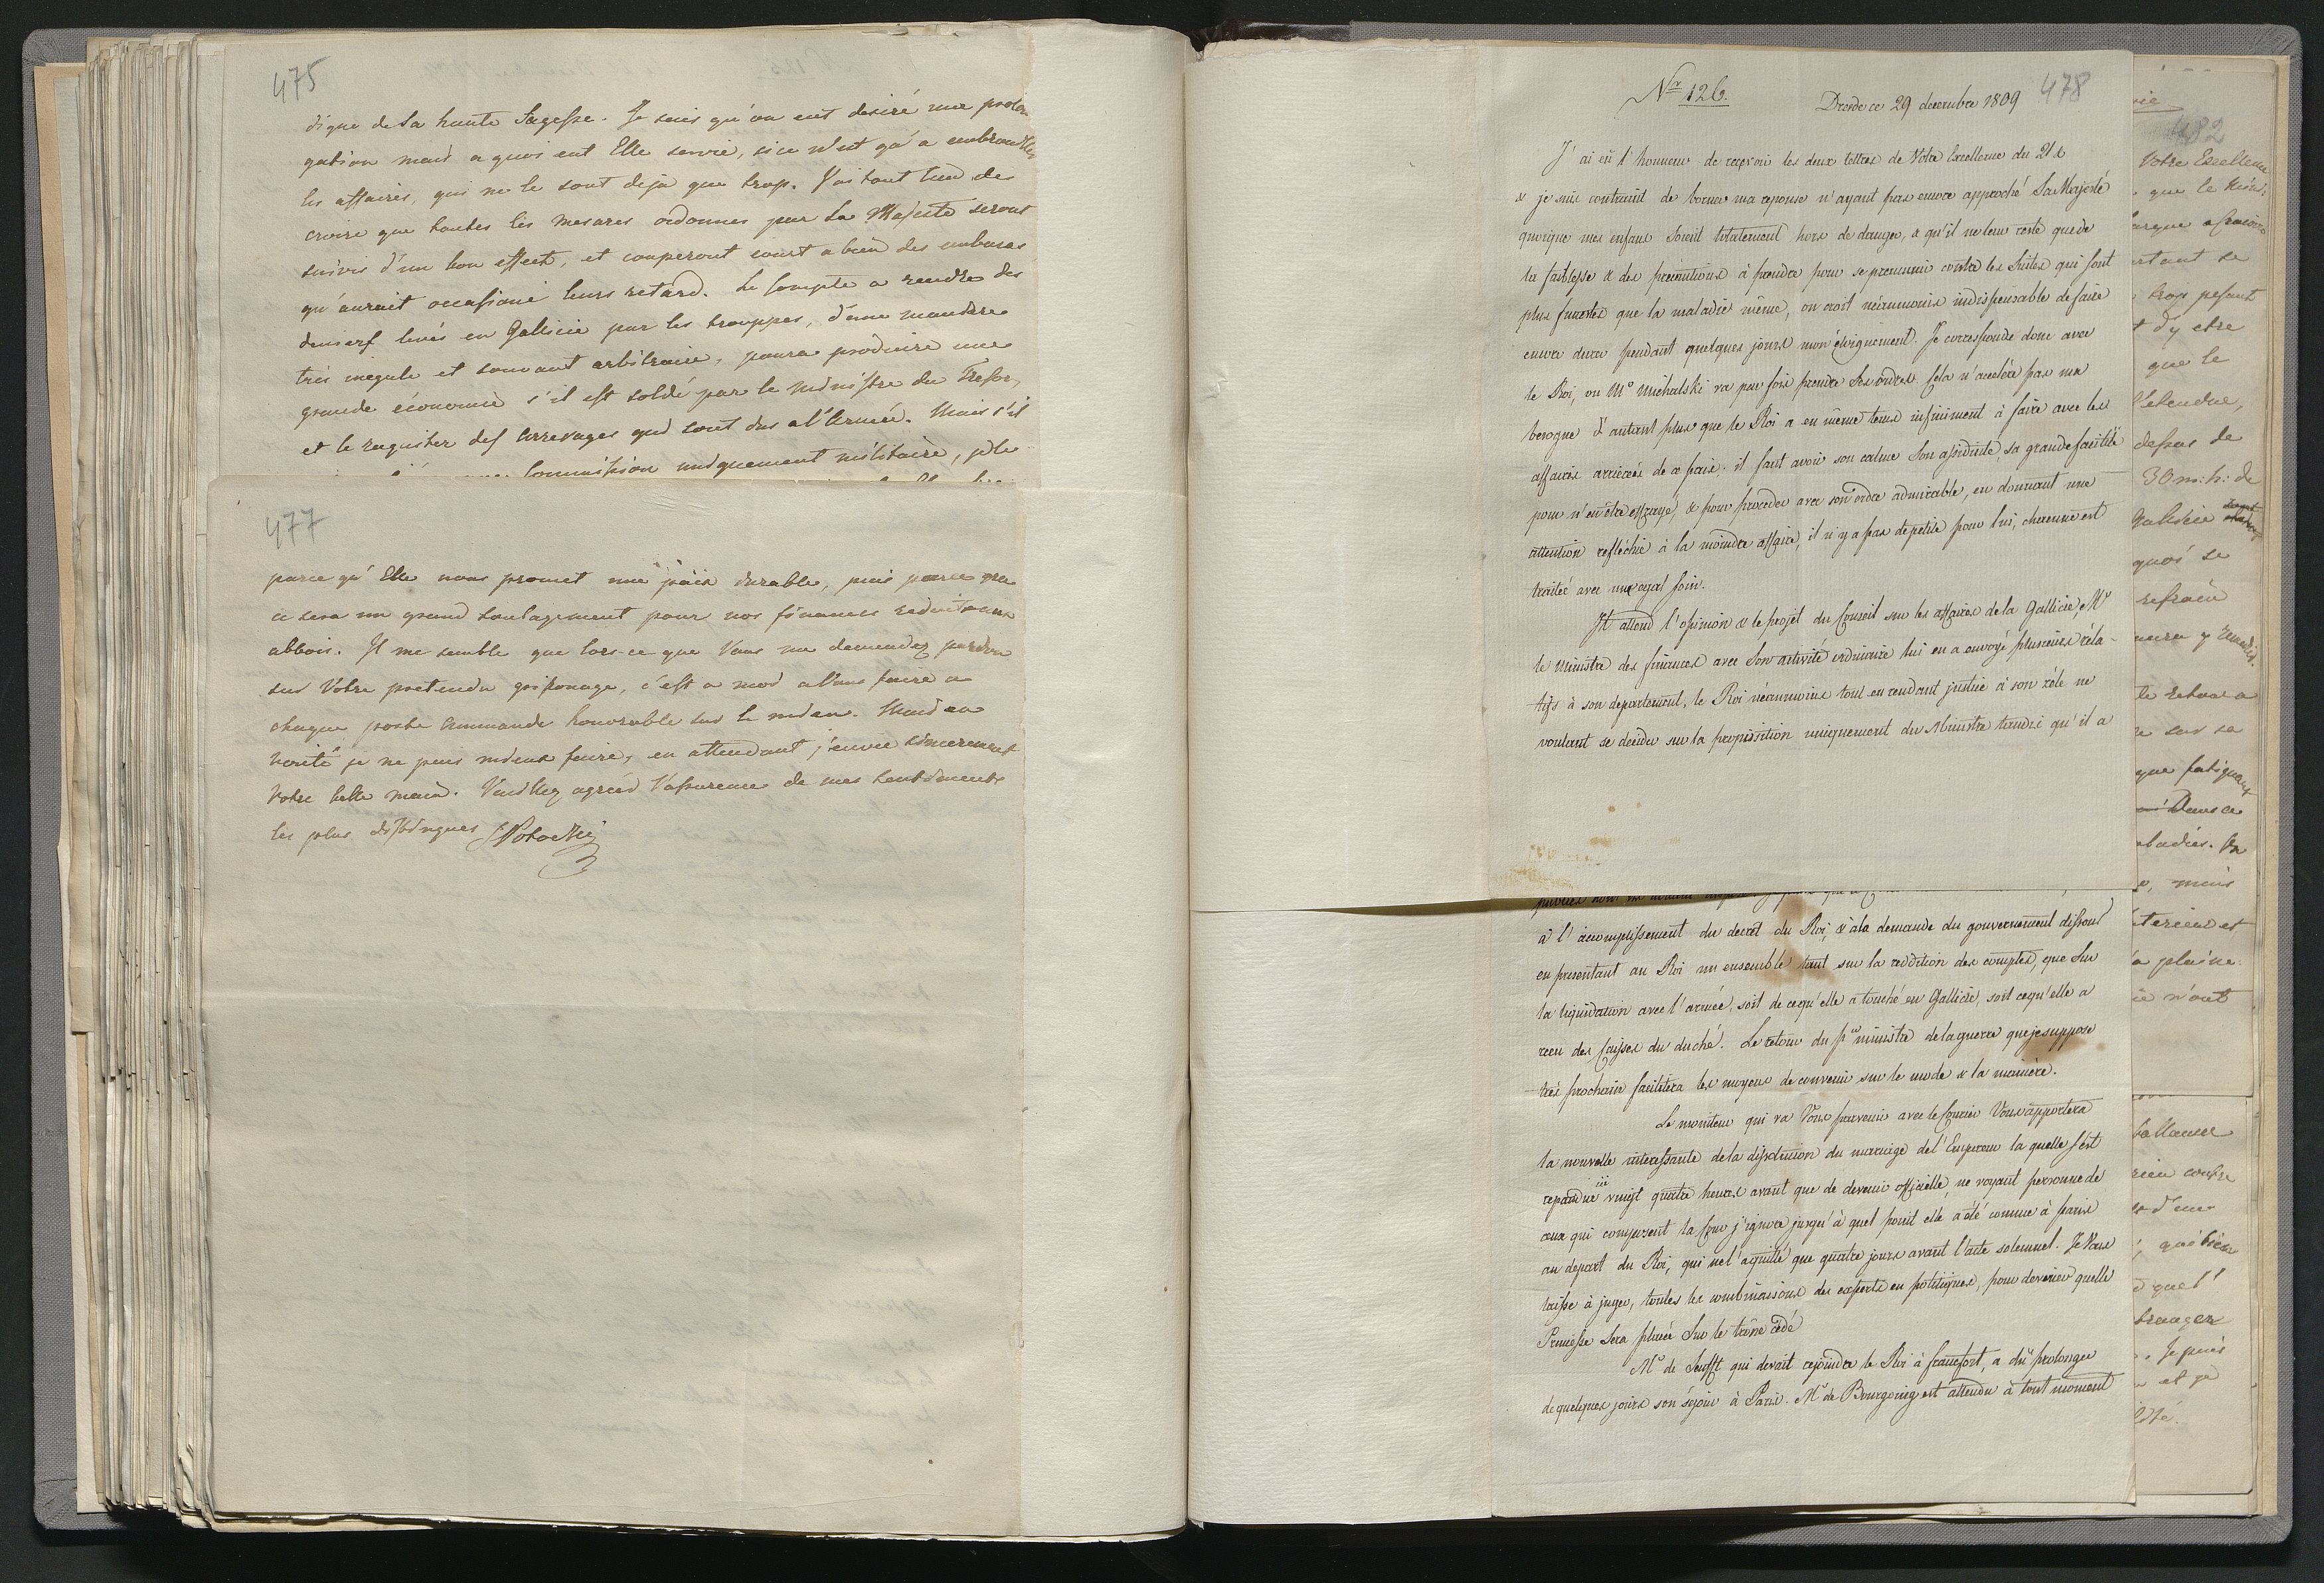 475
digne de Sa haute Sagesse. Je sais qu'on eut desiré une prolon
gation mais a quoi eut Elle servie, si ce n'eut qu'a embrouiller
les affaires, qui ne le sont deja que trop. J'ai tout lieu de
croire que toutes les mesures ordonnés par Sa Majesté seront
suivis d'un bon effect, et couperont court a bien des embaras
qu'aurait occasioné leurs retard. Le Compte a rendre des
deniers levés en Gallicie par les trouppes, d'une maniere
très inegale et souvant arbitraire, poura produire une
grande économie s'il est soldé par le Ministre du Tresor,
et le reguister des Arrevages qui sont dus a l'Armée. Mais s'il
Commission uniquement militaire, je le
477
parce qu'Elle nous promet une paix durable, puis parce que
ce sera un grand soulagement pour nos finances reduit aux
abbois. Il me semble que lors-ce que Vous me demandez pardon
sur Votre pretendu grifonage, c'est a moi a Vous faire a
chaque poste Ammande honorable sur le mien. Mais en
verité je ne puis mieux faire, en attendant j'envie sincerement
Votre belle main. Veuillez agréer l'assurence de mes sentiments
les plus distingues SPotocki
Nr 126.
Dresde ce 29 decembre 1809
478
J'ai eü l'honneur de reçevoir les deux lettres de Votre Excellence du 21 &
& je suis contraint de borner ma reponse n'ayant pas encore approché Sa Majesté
quoique mes enfans soient totalement hors de danger, & qu'il ne leur reste que de
la faiblesse & des precautions à prendre pour se premunir contre les Suites qui sont
plus funestes que la maladie même, on croit néanmoins indispensable de faire
encore durer pendant quelques jours mon éloignement. Je corresponde donc avec
le Roi, ou Mr Michalski va par fois prendre Ses ordres. Cela n'accelére pas ma
besogne d'autant plus que le Roi a en même tems infiniment à faire avec les
affaires arrierées de ce pais; il faut avoir son calme Son assiduité, sa grande facilité
pour n'en être effrayé, & pour proceder avec son ordre admirable, en donnant une
attention refléchie à la moindre affaire, il n'y a pas de petite pour lui, chacune est
traitée avec un egal soin.
Il attend l'opinion & le projet du Conseil sur les affaires de la Gallicie, Mr
le Ministre des finances avec Son activité ordinaire lui en a envoyé plusieurs réla-
tifs à son departement, le Roi néanmoins tout en rendant justice à son zéle ne
voulant se decider sur la proposition uniquement du Ministre tandis qu'il a
à l'accomplissement du decret du Roi, & à la demande du gouvernement dissout
en presentant au Roi un ensemble tant sur la reddition des comptes, que Sur
la liquidation avec l'armée, soit de ce qu'elle a touché en Gallicie, soit ce qu'elle a
recu des Caisses du duché. Le retour du pce ministre de la guerre que je suppose
très prochain facilitera les moyens de convenir sur le mode & la manière.
Le moniteur qui va Vous parvenir avec le Courier Vous apportera
la nouvelle interessante de la dissolution du marriage de l'Empereur la quelle s'est
repandue ici vingt quatre heures avant que de devenir officielle, ne voyant personne de
ceux qui composent la Cour j'ignore jusqu'à quel point elle a été connue à paris
au depart du Roi, qui ne l'a quitté que quatre jours avant l'acte solemnel. Je Vous
laisse à juger, toutes les combinaisons des experts en politiques, pour deviner quelle
Princesse Sera placée Sur le trône cédé
Mr de Senfft qui devait rejoindre le Roi à francfort, a dû prolonger
de quelques jours son séjour à Paris. Mr de Bourgoing est attendu à tout moment
482
Votre Excellence
que le
trop pesant
d'y etre
que le
l'etendue,
30 m: h: de
Gallicie sont
quoi se
refrain
le retour a
sur sa
que fatiguant
Dans ce
mais
a pleine.
n'ont
ballancer
rien contre
d'une
qui bien
que l'
etranger
Je puis
et je